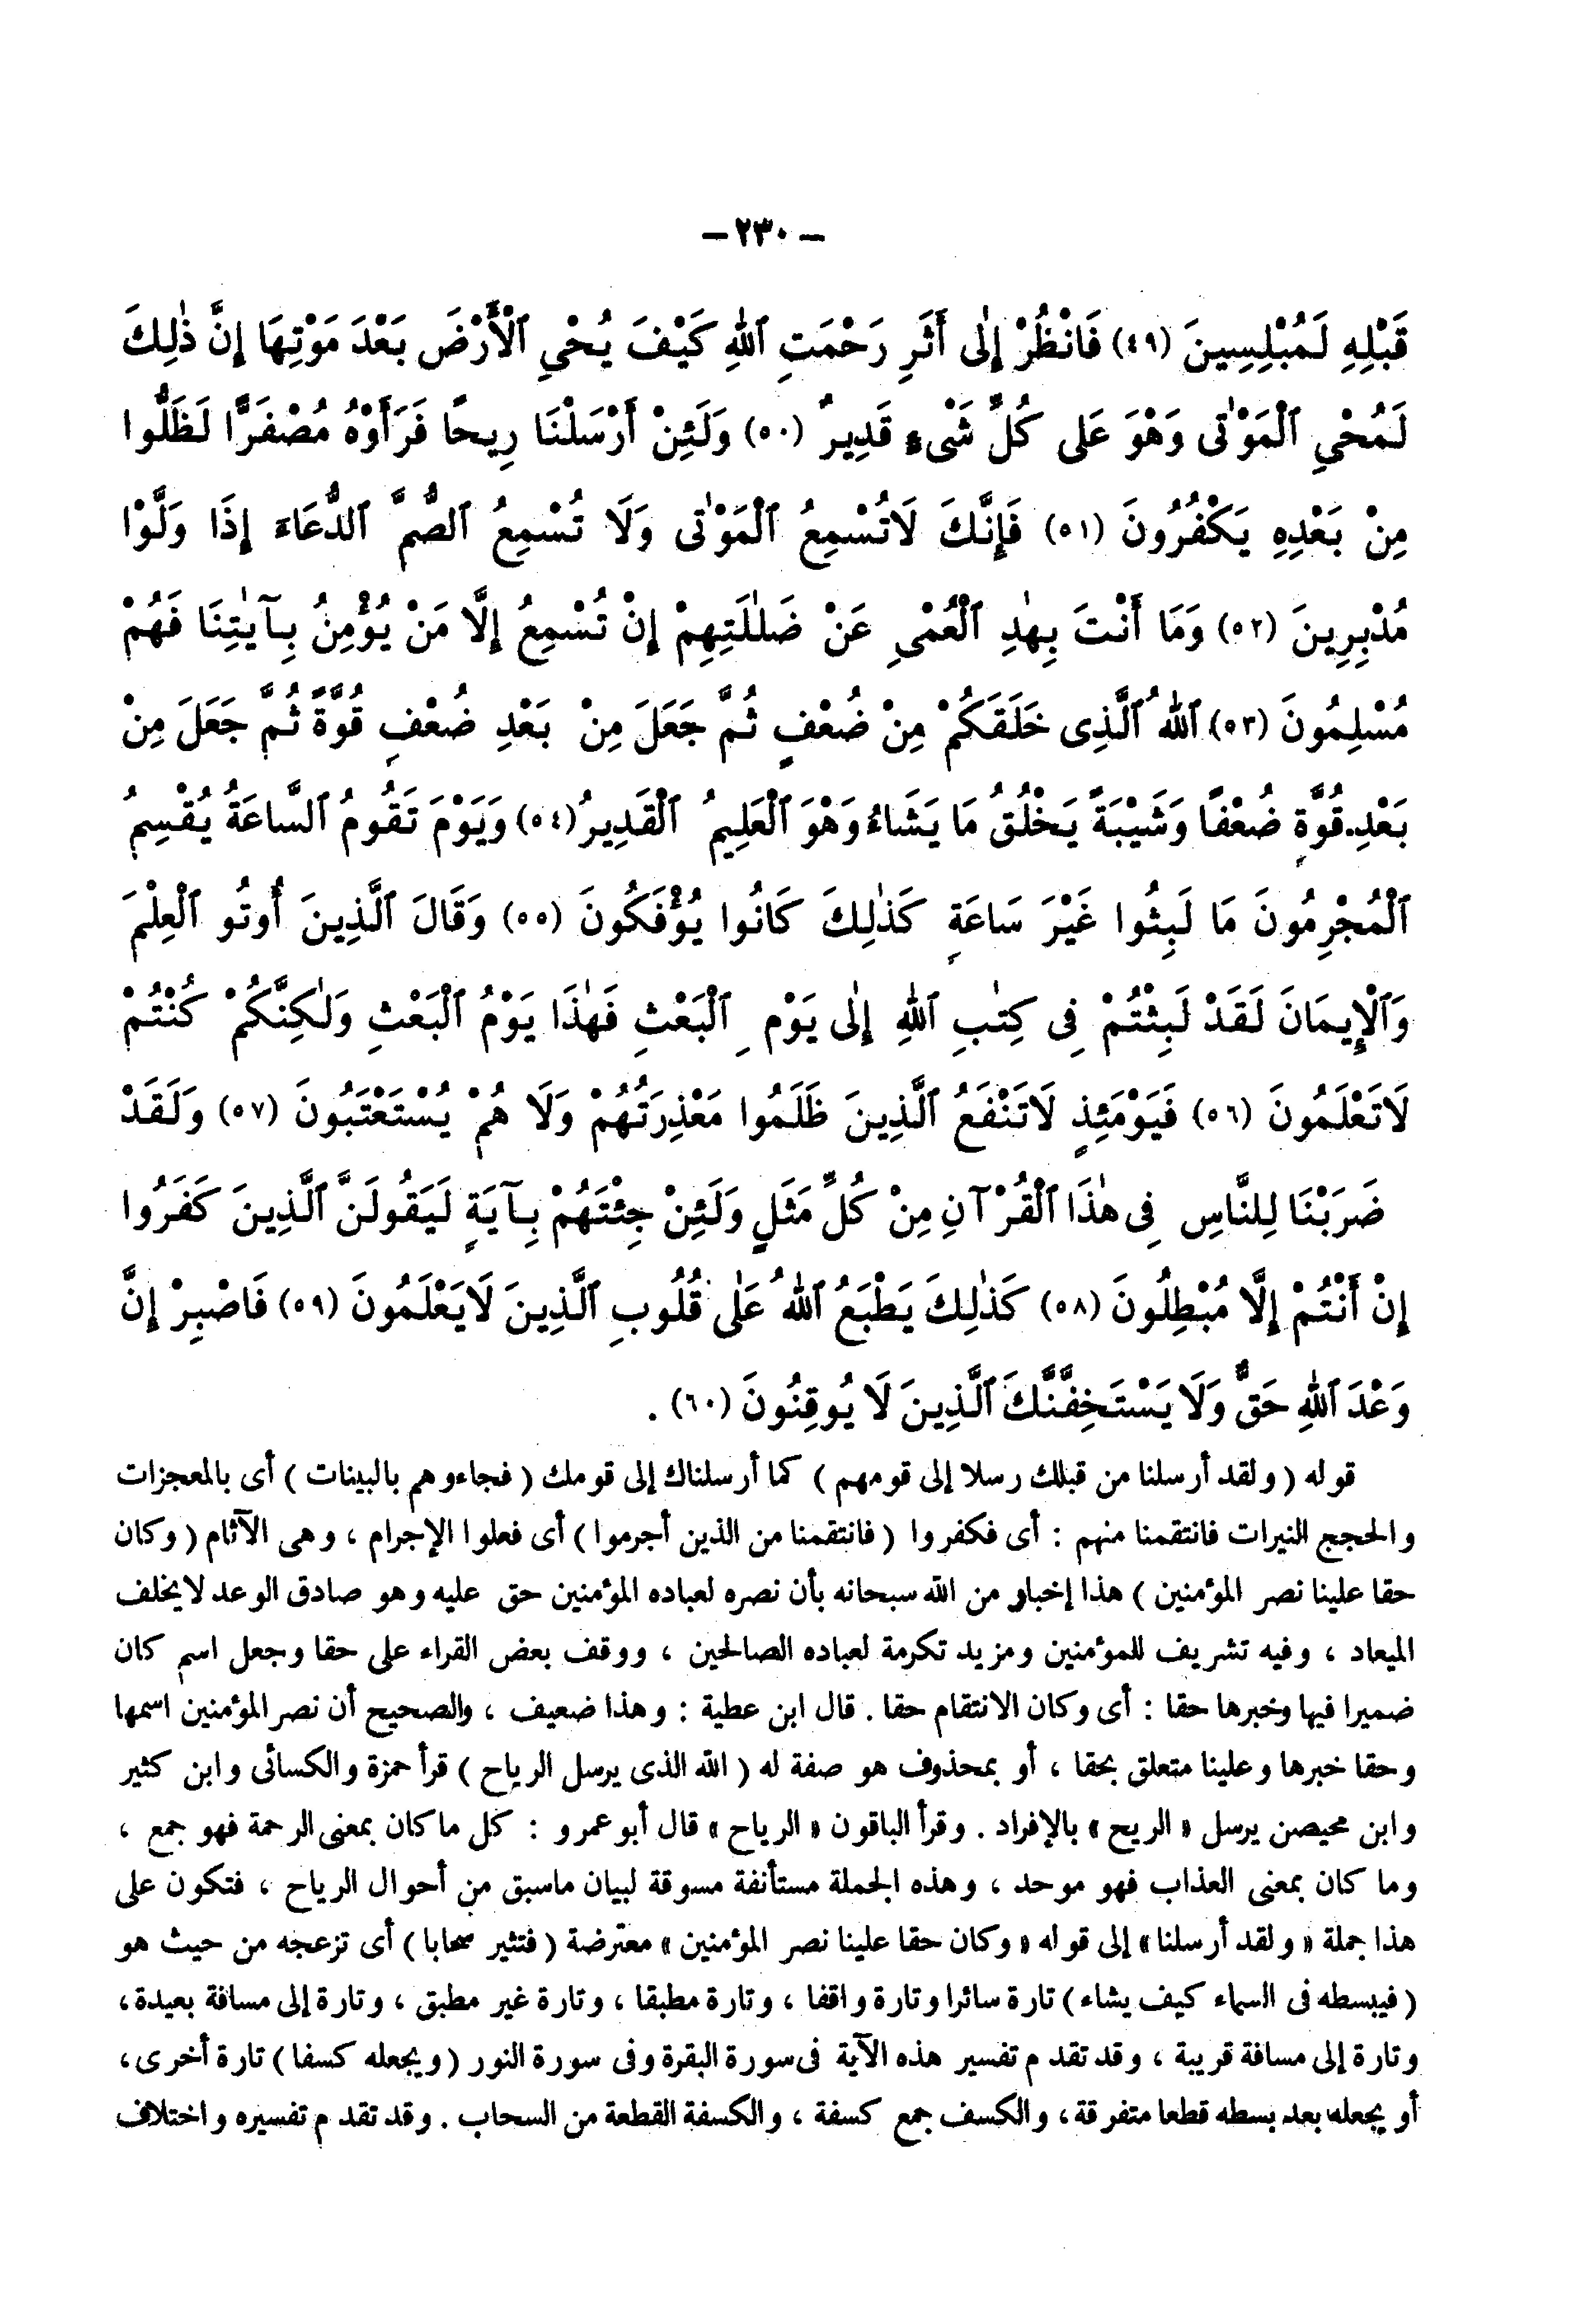 — ٢٣٠ —
قَبْلِهِ لَمُبْلِسِينَ (٤٩) فَانْظُرْ إِلٰى أَثَرِ رَحْمَتِ ٱللهِ كَيْفَ يُحْيِ ٱلْأَرْضَ بَعْدَ مَوْتِهَا إِنَّ ذٰلِكَ
لَمُحْيِ ٱلْمَوْتٰى وَهْوَ عَلى كُلِّ شَىْءٍ قَدِيرٌ (٥٠) وَلَئِنْ أَرْسَلْنَا رِيحًا فَرَأَوْهُ مُصْفَرًّا لَظَلُّوا
مِنْ بَعْدِهِ يَكْفُرُونَ (٥١) فَإِنَّكَ لَاتُسْمِعُ ٱلْمَوْتٰى وَلَا تُسْمِعُ ٱلصُّمَّ ٱلدُّعَاءَ إِذَا وَلَّوْا
مُدْبِرِينَ (٥٢) وَمَا أَنْتَ بِهٰدِ ٱلْعُمْىِ عَنْ ضَلٰلَتِهِمْ إِنْ تُسْمِعُ إِلَّا مَنْ يُؤْمِنُ بِآيٰتِنَا فَهُمْ
مُسْلِمُونَ (٥٣) ٱللهُ ٱلَّذِى خَلَقَكُمْ مِنْ ضُعْفٍ ثُمَّ جَعَلَ مِنْ بَعْدِ ضُعْفٍ قُوَّةً ثُمَّ جَعَلَ مِنْ
بَعْدِ قُوَّةٍ ضُعْفًا وَشَيْبَةً يَخْلُقُ مَا يَشَاءُ وَهْوَ ٱلْعَلِيمُ ٱلْقَدِيرُ (٥٤) وَيَوْمَ تَقُومُ ٱلسَّاعَةُ يُقْسِمُ
ٱلْمُجْرِمُونَ مَا لَبِثُوا غَيْرَ سَاعَةٍ كَذٰلِكَ كَانُوا يُؤْفَكُونَ (٥٥) وَقَالَ ٱلَّذِينَ أُوتُو ٱلْعِلْمَ
وَٱلْإِيمَانَ لَقَدْ لَبِثْتُمْ فِى كِتٰبِ ٱللهِ إِلٰى يَوْمِ ٱلْبَعْثِ فَهٰذَا يَوْمُ ٱلْبَعْثِ وَلٰكِنَّكُمْ كُنْتُمْ
لَاتَعْلَمُونَ (٥٦) فَيَوْمَئِذٍ لَاتَنْفَعُ ٱلَّذِينَ ظَلَمُوا مَعْذِرَتُهُمْ وَلَا هُمْ يُسْتَعْتَبُونَ (٥٧) وَلَقَدْ
ضَرَبْنَا لِلنَّاسِ فِى هٰذَا ٱلْقُرْآنِ مِنْ كُلِّ مَثَلٍ وَلَئِنْ جِئْتَهُمْ بِآيَةٍ لَيَقُولَنَّ ٱلَّذِينَ كَفَرُوا
إِنْ أَنْتُمْ إِلَّا مُبْطِلُونَ (٥٨) كَذٰلِكَ يَطْبَعُ ٱللهُ عَلٰى قُلُوبِ ٱلَّذِينَ لَايَعْلَمُونَ (٥٩) فَاصْبِرْ إِنَّ
وَعْدَ ٱللهِ حَقٌّ وَلَا يَسْتَخِفَّنَّكَ ٱلَّذِينَ لَا يُوقِنُونَ (٦٠) .
قوله ( ولقد أرسلنا من قبلك رسلا إلى قومهم ) كما أرسلناك إلى قومك ( فجاءوهم بالبينات ) أى بالمعجزات
والحجج النيرات فانتقمنا منهم : أى فكفروا ( فانتقمنا من الذين أجرموا ) أى فعلوا الإجرام ، وهى الآثام ( وكان
حقا علينا نصر المؤمنين ) هذا إخبار من الله سبحانه بأن نصره لعباده المؤمنين حق عليه وهو صادق الوعد لايخلف
الميعاد ، وفيه تشريف للمؤمنين ومزيد تكرمة لعباده الصالحين ، ووقف بعض القراء على حقا وجعل اسم كان
ضميرا فيها وخبرها حقا : أى وكان الانتقام حقا . قال ابن عطية : وهذا ضعيف ، والصحيح أن نصر المؤمنين اسمها
وحقا خبرها وعلينا متعلق بحقا ، أو بمحذوف هو صفة له ( الله الذى يرسل الرياح ) قرأ حمزة والكسائى وابن كثير
وابن محيصن يرسل « الريح » بالإفراد . وقرأ الباقون « الرياح » قال أبو عمرو : كل ماكان بمعنى الرحمة فهو جمع ،
وما كان بمعنى العذاب فهو موحد ، وهذه الجملة مستأنفة مسوقة لبيان ماسبق من أحوال الرياح ، فتكون على
هذا جملة « ولقد أرسلنا » إلى قوله « وكان حقا علينا نصر المؤمنين » معترضة ( فتثير سحابا ) أى تزعجه من حيث هو
( فيبسطه فى السماء كيف يشاء ) تارة سائرا وتارة واقفا ، وتارة مطبقا ، وتارة غير مطبق ، وتارة إلى مسافة بعيدة ،
وتارة إلى مسافة قريبة ، وقد تقدم تفسير هذه الآية فى سورة البقرة وفى سورة النور ( ويجعله كسفا ) تارة أخرى ،
أو يجعله بعد بسطه قطعا متفرقة ، والكسف جمع كسفة ، والكسفة القطعة من السحاب . وقد تقدم تفسيره واختلاف